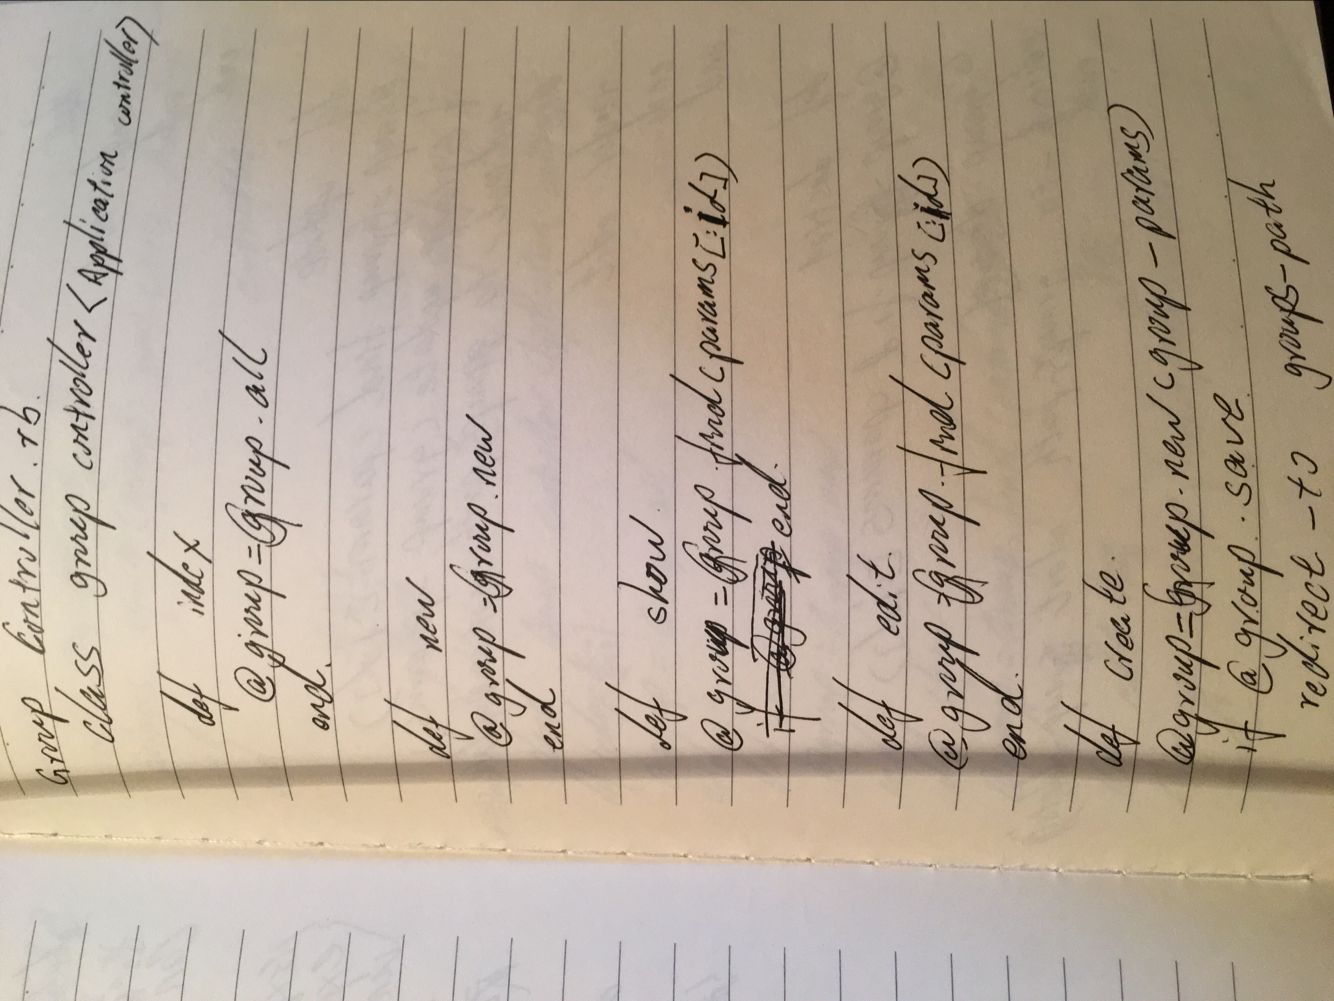 Group Controller.rb.
class group controller < Application controller)
def index
@group = Group.all
end.
def new
@group = Group.new
end
def show.
@group = Group.find(params[:id])
if @group end.
def edit.
@group = Group.find(params[:id])
end.
def create.
@group = Group.new(group-params)
if @group.save
redirect-to groups-path